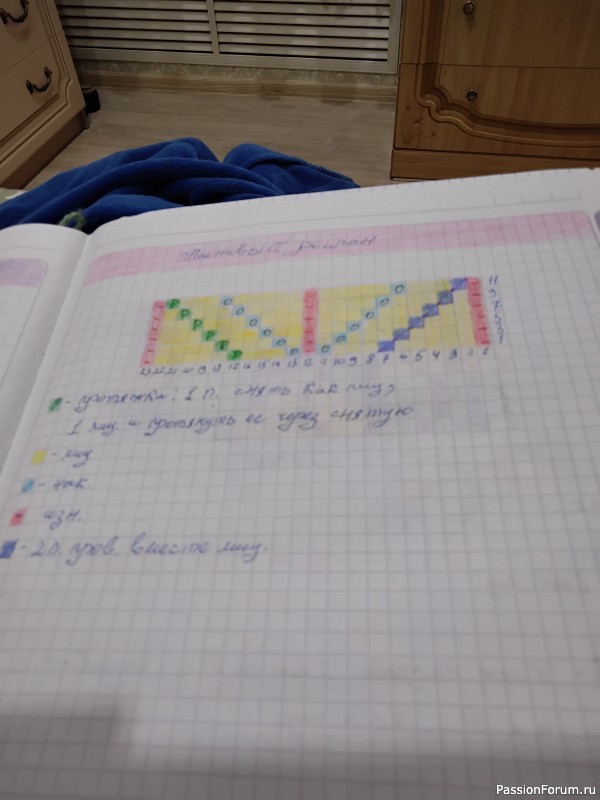 23 22 21 20 19 18 17 16 15 14 13 12 11 10 9 8 7 6 5 4 3 2 1
- протяжка: 1 п. снять как лиц,
1 лиц. и протянуть ее через снятую
- лиц
- нак.
- изн.
- 2 п. пров. вместе лиц.
PassionForum.ru